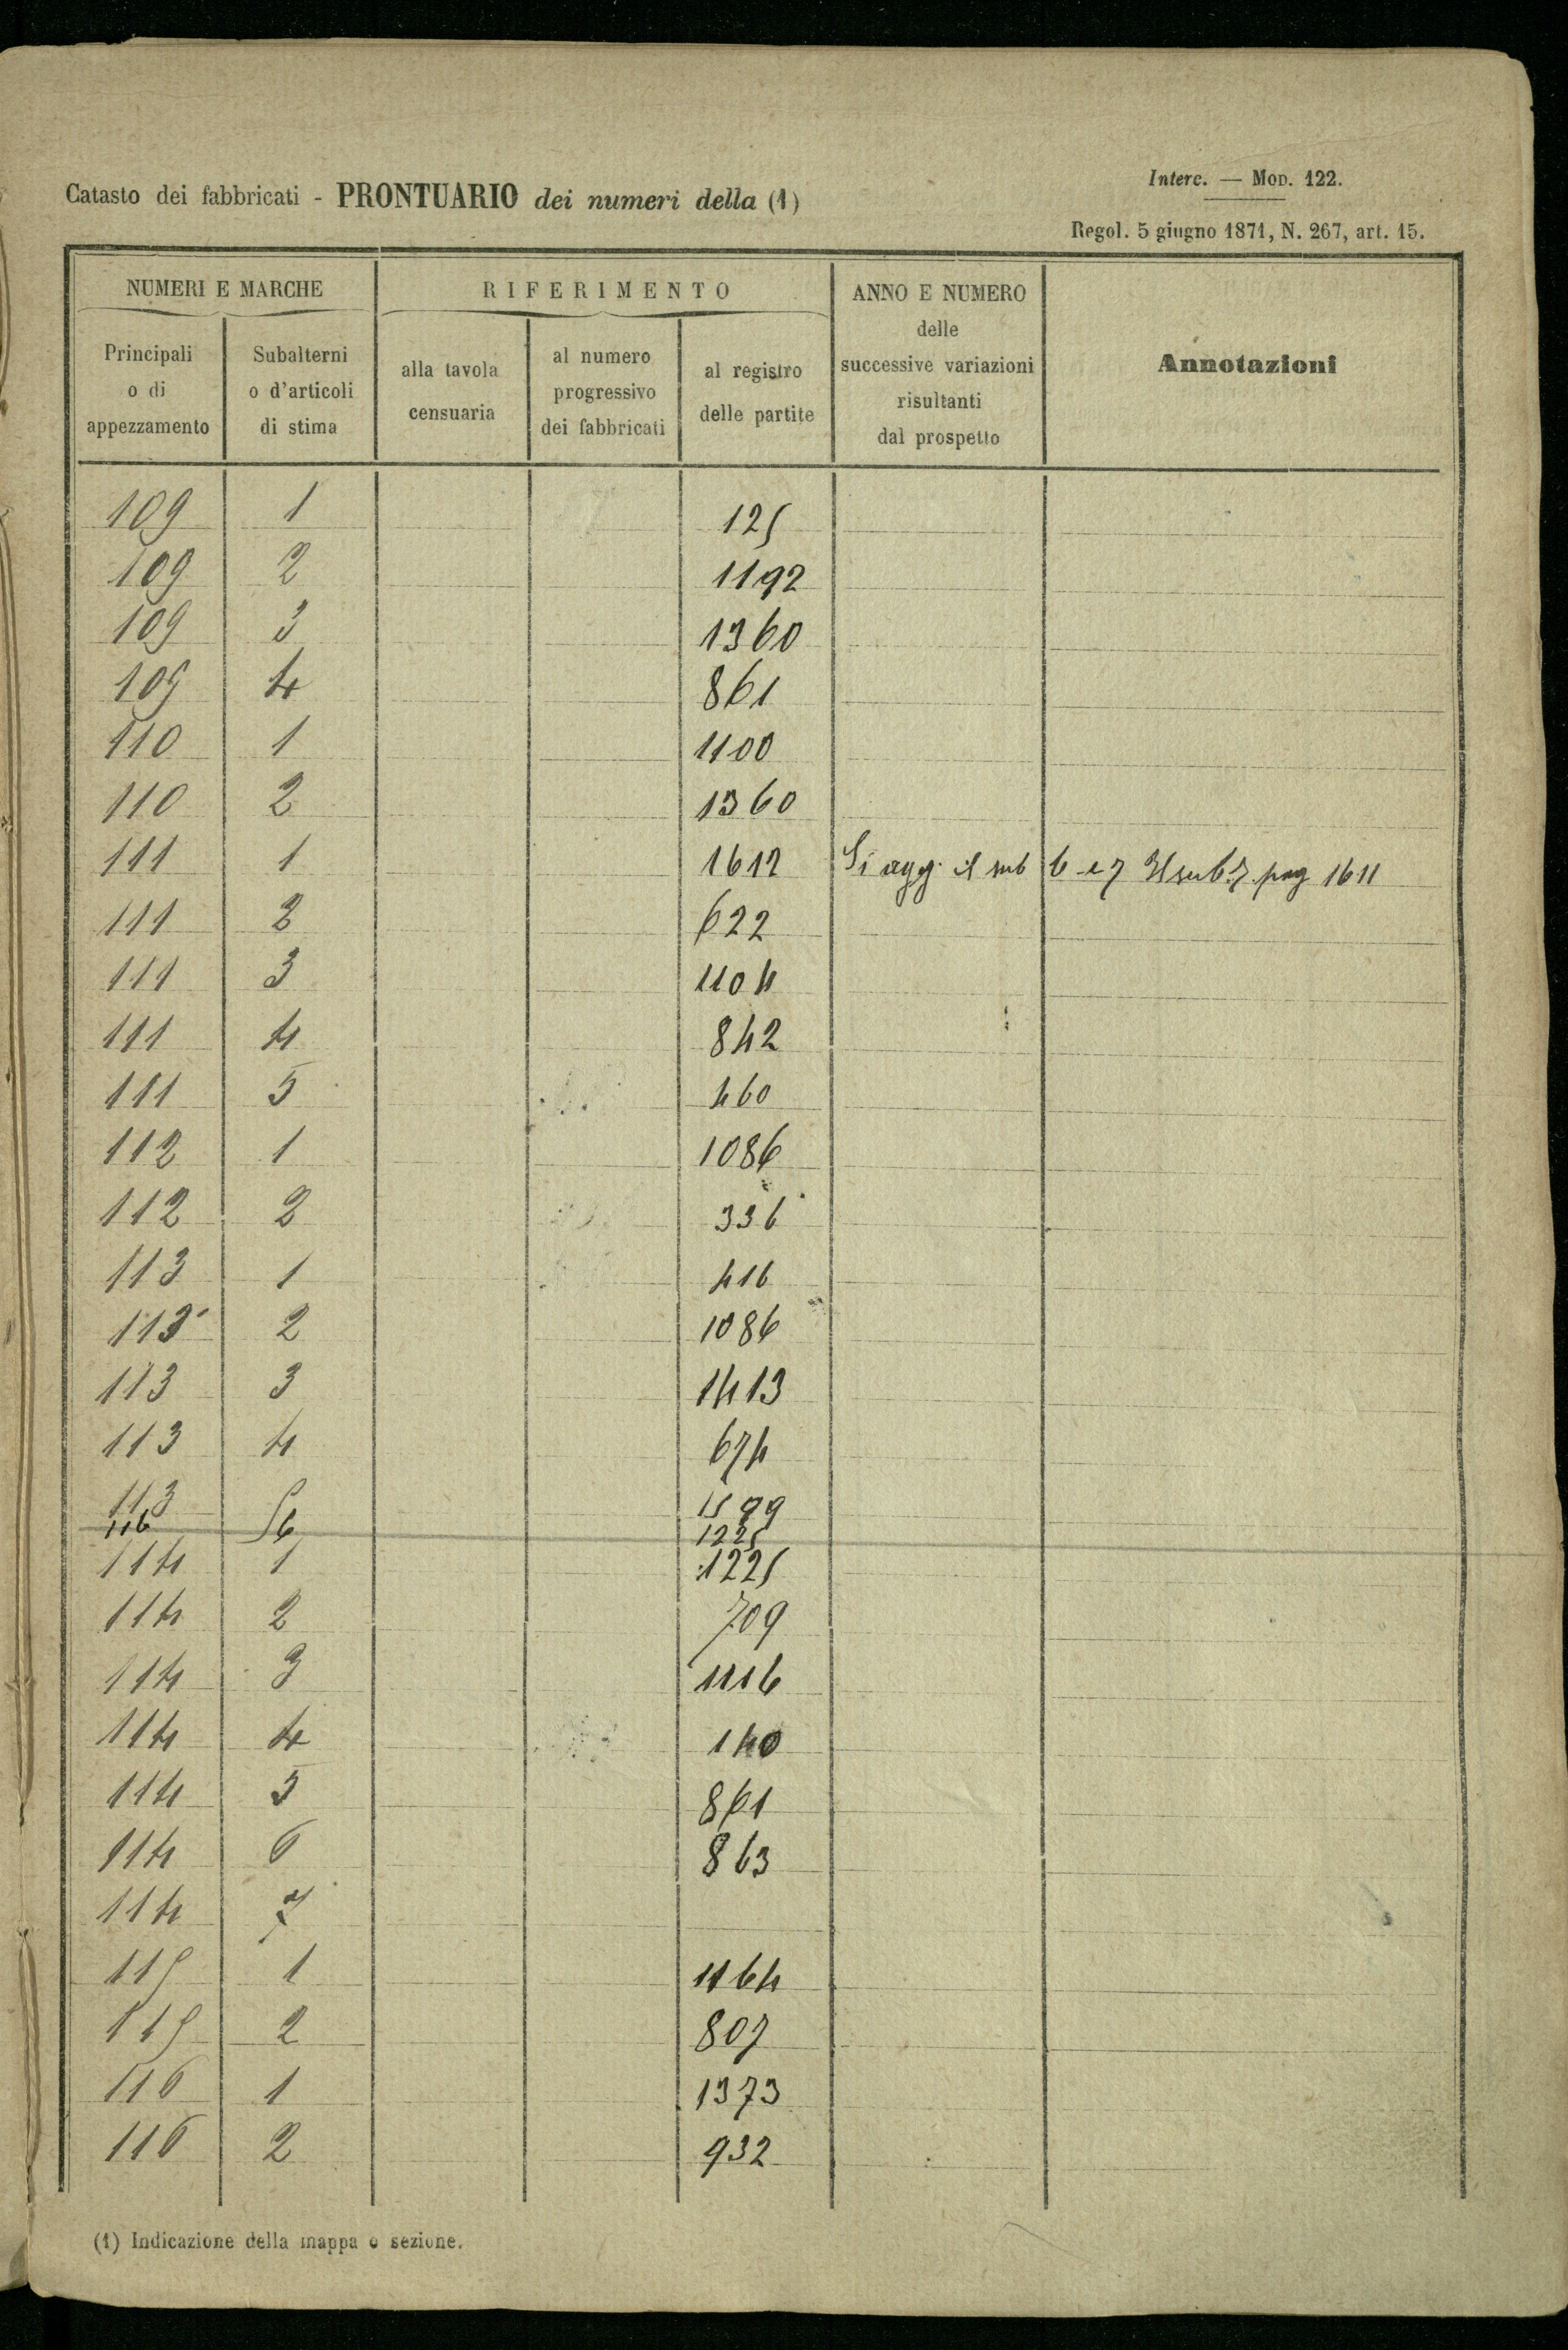 Interc. — Mod. 122.
Catasto dei fabbricati - PRONTUARIO dei numeri della (1)
Regol. 5 giugno 1871, N. 267, art. 15.
NUMERI E MARCHE
RIFERIMENTO
ANNO E NUMERO
delle
successive variazioni
risultanti
dal prospetto
Annotazioni
Principali
o di
appezzamento
Subalterni
o d'articoli
di stima
alla tavola
censuaria
al numero
progressivo
dei fabbricati
al registro
delle partite
109 1 125
109 2 1192
109 3 1360
109 4 861
110 1 1100
110 2 1360
111 1 1612 Si agg. il sub 6 e 7 Il sub. 7. pag 1611
111 2 622
111 3 1104
111 4 842
111 5 460
112 1 1086
112 2 336
113 1 416
113 2 1086
113 3 1413
113 4 674
113 5 1599
116 6 1225
114 1 1225
114 2 709
114 3 1116
114 4 140
114 5 861
114 6 863
114 7
115 1 1164
115 2 807
116 1 1373
116 2 932
(1) Indicazione della mappa o sezione.